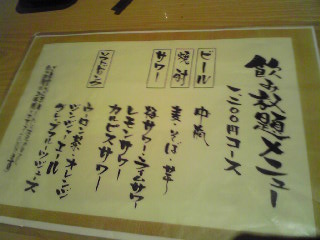 飲み放題メニュー
一二〇〇円コース
ビール
中瓶
焼酎
麦・そば・芋
サワー
梅サワー・ライムサワー
レモンサワー
カルピスサワー
ソフトドリンク
ウーロン茶・オレンジ
ジンジャーエール
グレープフルーツジュース